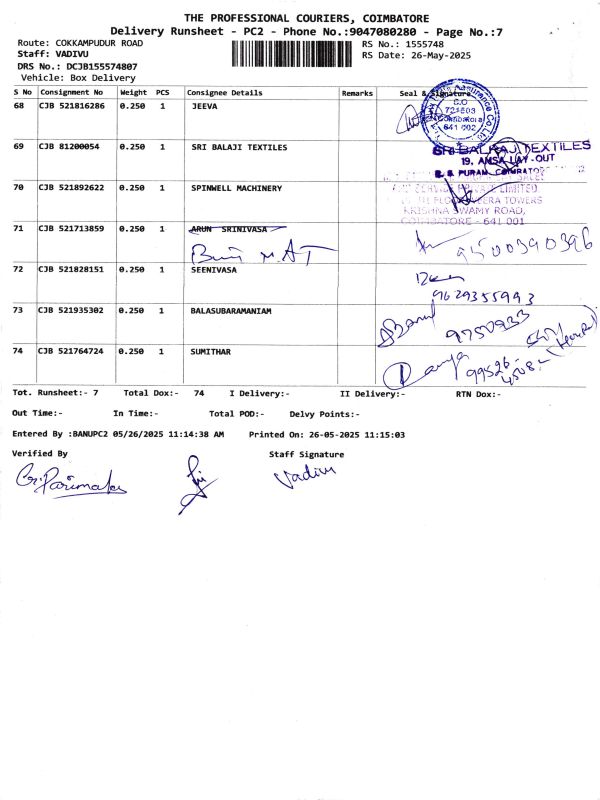 THE PROFESSIONAL COURIERS, COIMBATORE
Delivery Runsheet - PC2 - Phone No.:9047080280 - Page No.:7
Route: COKKAMPUDUR ROAD
RS No.: 1555748
Staff: VADIVU
RS Date: 26-May-2025
DRS No.: DCJB155574807
Vehicle: Box Delivery
S No Consignment No Weight PCS Consignee Details Remarks Seal & Signature
68 CJB 521816286 0.250 1 JEEVA
Assurance Co.Ltd.
C.O
721503
Coimbatore
641 002
69 CJB 81200054 0.250 1 SRI BALAJI TEXTILES
Sri BALRAJ TEXTILES
19, ANSA LAY-OUT
R. S. PURAM, COIMBATORE
70 CJB 521892622 0.250 1 SPINWELL MACHINERY
AND SERVICE PRIVATE LIMITED
FLOOR VEERA TOWERS
KRISHNA SWAMY ROAD,
COIMBATORE - 641 001
71 CJB 521713859 0.250 1 ARUN SRINIVASA
9500390396
72 CJB 521828151 0.250 1 SEENIVASA
9629355993
73 CJB 521935302 0.250 1 BALASUBARAMANIAM
74 CJB 521764724 0.250 1 SUMITHAR
Ramya 99526-
4508-
Tot. Runsheet:- 7 Total Dox:- 74 I Delivery:- II Delivery:- RTN Dox:-
Out Time:- In Time:- Total POD:- Delvy Points:-
Entered By :BANUPC2 05/26/2025 11:14:38 AM Printed On: 26-05-2025 11:15:03
Verified By Staff Signature
Vadivu